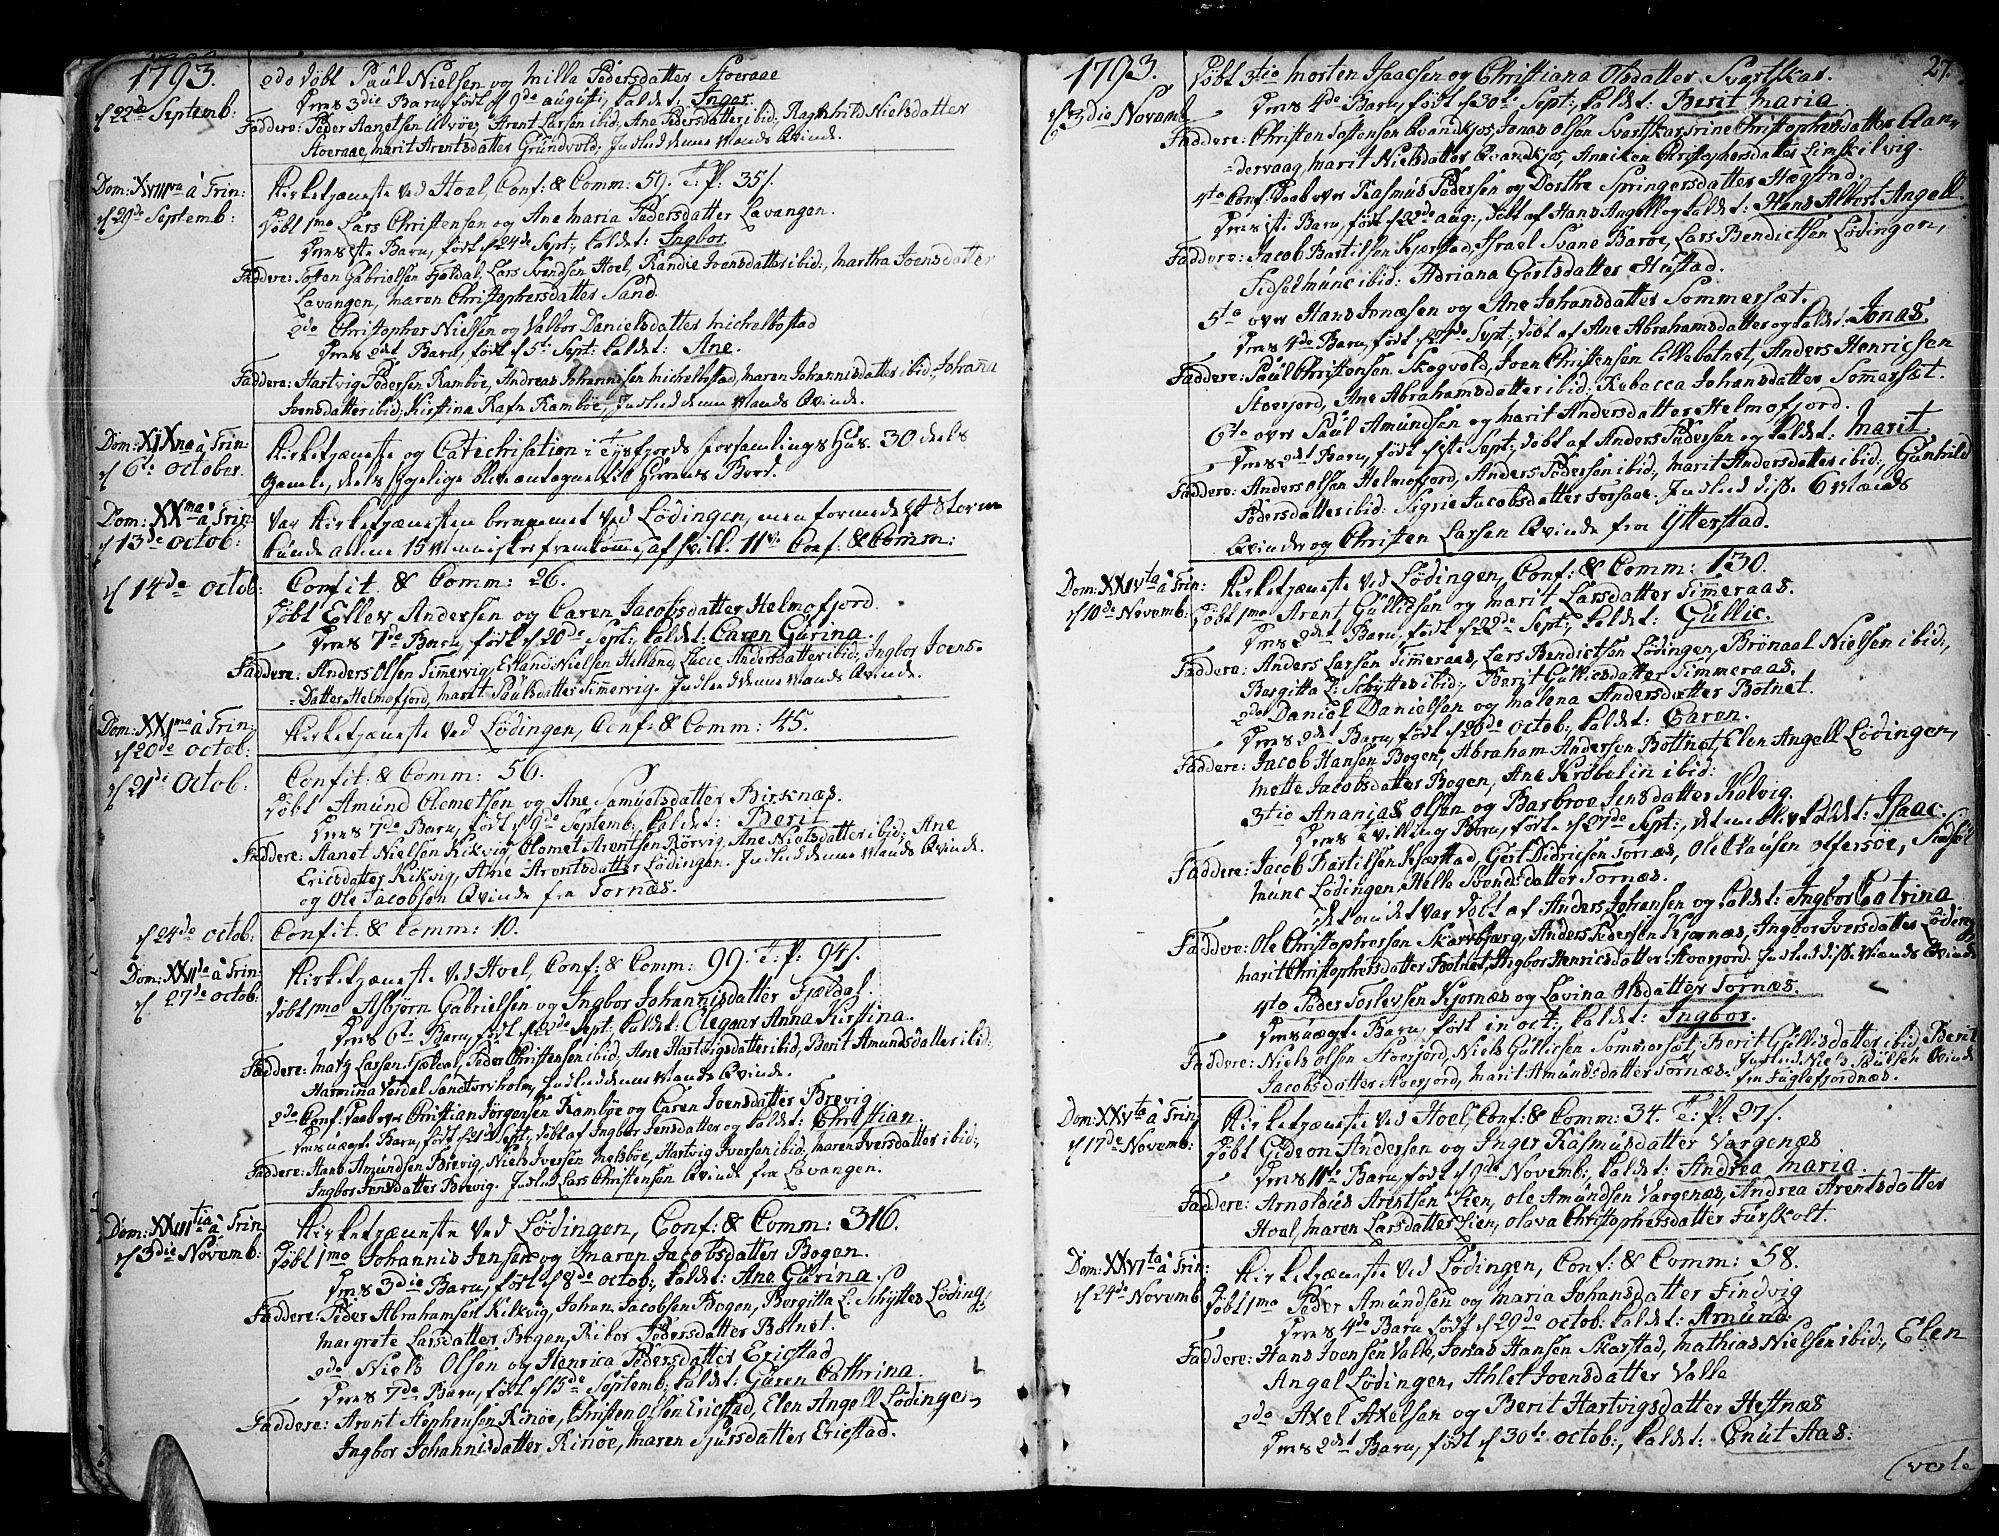 1793.
d 22de Septemb:
2do Døbt Paul Nielsen og Milla Pedersdatter Stoeraae
Deres 3die Barn, født d 9de augusti, kaldet: Inger.
Faddere: Peder Aanetsen Alvøe, Arent Larsen ibid; Ane Pedersdatter ibid; Ragnhild Nielsdatter
Stoeraae, Marit Arentsdatter Grundvold; Indled denne Mands Qvinde.
Dom: XVIIIva à Trin:
d 29de Septemb:
Kirketjæneste ved Hoel, Conf: & Comm: 59. T: P: 35/.
Døbt 1mo Lars Christensen og Ane Maria Pedersdatter Lavangen.
Deres 1ste Barn, født d 24de Sept; kaldet: Ingbor.
Faddere: Tosten Gabrielsen Fjeldal, Lars Svendsen Hoel, Randie Joensdatter ibid:, Martha Joensdatter
Lavangen, Maren Christophersdatter Sand.
2do Christopher Nielsen og Valbor Danielsdatter Michelbostad
Deres 2det Barn, født d 5t Sept: kaldet: Ane.
Faddere: Hartvig Pedersen Rambøe, Andreas Johannisen Michelbostad, Maren Johannisdatter ibid:, Johanna
Joensdatter ibid; Kirstina Rafn Rambøe, Indled denne Mands Qvinde.
Dom: XIXna à Trin:
d 6te October.
Kirketjæneste og Catechisation i Tysfjords Forsamlings Hus. 30 deels
Gamle, deels sygelige blev antagne til Herrens Bord.
Dom: XXma à Trin:
d 13de Octob:
Var Kirketjænesten berammet ved Lødingen, men formedelst Storm
kunde alene 15 Mennisker fremkomme, af hvilk: 11 Conf: & Comm:
d 14de Octob:
Confit. & Comm: 26.
Døbt Ellev Andersen og Caren Jacobsdatter Helmofjord.
Deres 7de Barn, født d 20de Sept; kaldet: Caren Gurina.
Faddere: Anders Olsen Timervig, Erland Nielsen Helland, Lucie Andersdatter ibid; Ingbor Joens-
=Datter Helmofjord, Marit Paulsdatter Timervig. Indled denne Mands Qvinde.
Dom: XXIma à Trin:
d 20de Octob:
Kirketjæneste ved Lødingen, Conf: & Comm: 45.
d 21de Octob:
Confit: & Comm: 56.
Døbt Amund Clemetsen og Ane Samuelsdatter Birknæs.
Deres 7de Barn, født d 9de Septemb: kaldet: Berit
Faddere: Aanet Nielsen Kikvig, Clemet Arentsen Rørvig, Ane Nielsdatter ibid; Ane
Ericsdatter Kikvig, Ane Arentsdatter Lødingen. Indled denne Mands Qvinde.
og Ole Jacobsøn Qvinde fra Tornæs.
d 24de Octob:
Confit. & Comm: 10.
Dom: XXIIda à Trin:
d 27de Octob:
Kirketjæneste ved Hoel, Conf: & Comm: 99. T: P: 94/.
Døbt 1mo Asbjørn Gabrielsen og Ingbor Johannisdatter Fjeldal.
Deres 6te Barn, født d 22de Sept; kaldet: Olegaar Anna Kirstina.
Faddere: Matz Larsen Fjeldal, Peder Christensen ibid; Ane Hartvigsdatter ibid, Berit Amundsdatter ibid:
Harmina Veidel Sandtorvholm, Indled denne Mands Qvinde.
2do Conf: Daab over Christian Jørgensen Rambøe og Caren Joensdatter Brevig
Deres uægte Barn, født d 21de Sept; døbt af Ingbor Jensdatter og kaldet: Christian.
Faddere: Hans Amundsen Brevig, Niels Iversen Melsbøe, Hartvig Iversen ibid, Maren Iversdatter ibid:,
Ingbor Jensdatter Brevig. Indled Lars Christensøn Qvinde fra Lavangen.
Dom: XXIIItia à Trin:
d 3die Novemb:
Kirketjæneste ved Lødingen, Conf: & Comm: 316.
Døbt 1mo Johannis Jensen og Maren Jacobsdatter Bogen.
Deres 3die Barn, født d 8de Octob:, kaldet: Ane Gurina.
Faddere: Peder Abrahamsen Kilvig, Johan Jacobsen Bogen, Borgitta L. Schyttes Løding:
Margrete Larsdatter Bogen, Ribor Pedersdatter Botnet.
2do Niels Olsen og Henrica Pedersdatter Ericstad
Deres 7de Barn, født d 15de Septemb: kaldet: Guren Cathrina.
Faddere: Arent Stephensen Rinøe, Christen Olsen Ericstad, Elen Angell Lødingen,
Ingbor Johannisdatter Rinøe, Maren Siursdatter Ericstad.
1793.
27.
d 3die Novemb:
Døbt 3tio Morten Isaacsen og Christiana Olsdatter Svartskar.
Deres 4de Barn, født d 30te Sept; kaldet: Berit Maria
Faddere: Christen Tostensen Qvandkjos, Jonas Olsen Svartskar, Trine Christophersdatter Aan=
=dervaag, Marit Nielsdatter Qvandkjos, Anniken Christophersdatter Limskilvig.
4to Conf: Daab over Rasmus Pedersen og Dorthe Springersdatter Hægstad.
Deres 1ste Barn, født d 23de aug:, døbt af Hans Angell og kaldet: Hans Albert Angell.
Faddere: Jacob Bartilsen Kjærstad, Israel Svane Barøe, Lars Bendictsen Lødingen,
Sidsel Munc ibid: Adriana Gertsdatter Hustad.
5to over Hans Jonæsen og Ane Johansdatter Sommersæt.
Deres 4de Barn, født d 24de Sept; døbt af Ane Abrahamsdatter og kaldet: Jonas.
Faddere: Paul Christensen Skogvold, Joen Christensen Lillebotnet, Anders Henricsen
Stoerjord, Ane Abrahamsdatter ibid: Rebacca Johansdatter Sommersæt.
6to over Paul Amundsen og Marit Andersdatter Helmofjord.
Deres 2det Barn, født d 1ste Sept; døbt af Anders Pedersen og kaldet: Marit.
Faddere: Anders Olsen Helmofjord, Anders Pedersen ibid:, Marit Andersdatter ibid:, Gunhild
Pedersdatter ibid: Sigrie Jacobsdatter Forsaae. Indled disse 6 Mænds
Qvinder og Christen Larsen Qvinde fra Ytterstad.
Dom: XXIVta à Trin:
d 10de Novemb:
Kirketjæneste ved Lødingen, Conf: & Comm: 130.
Døbt 1mo Arent Gullicsen og Marit Larsdatter Timeraas.
Deres 2det Barn, født d 22de Sept; kaldet: Gullic.
Faddere: Anders Larsen Timeraas, Lars Bendictsen Lødingen, Brønaal Nielsen ibid:,
Borgitta L: Schyttes ibid:, Berit Gullicsdatter Timmeraas.
2do Daniel Danielsen og Malena Andersdatter Botnet.
Deres 2det Barn, født d 26de Octob: kaldet: Caren.
Faddere: Jacob Hansen Bogen, Abraham Andersen Bottnet, Elen Angell Lødingen,
Mette Jacobsdatter Bogen, Ane Krøbelin ibid:
3tio Ananias Olsen og Barbroe Jensdatter Kalvig.
Deres Tvilling Børn, født d 27de Sept:, det ene blev kaldet: Isaac.
Faddere: Jacob Bartilsen Kjærstad, Gert Didricsen Tornæs, Ole Clausen Offersøe, Sidsel
Munc Lødingen, Helle Svendsdatter Tornæs.
Det andet var døbt af Anders Johansen og kaldet: Ingbor Catrina
Faddere: Ole Christophersen Skarvbjerg, Anders Pedersen Kjornæs, Ingbor Iversdatter Lødingen
Marit Christophersdatter Botnet, Ingbor Henricsdatter Stoerjord. Indled disse Mænds Qvinde
4to Peder Torlevsen Kjornæs og Lavina Olsdatter Tornæs.
Deres uægte Barn, født in Oct:, kaldet: Ingbor.
Faddere: Niels Olsen Stoerjord, Niels Gullicsen Sommersæt, Berit Gullicsdatter ibid, Berit
Jacobsdatter Stoerjord, Marit Amundsdatter Tornæs. Indled Niels Paulsen Qvinde
fra Fuglefjordnæs.
Dom: XXVta à Trin:
d 17de Novemb:
Kirketjæneste ved Hoel, Conf: & Comm: 34. T: P: 27/.
Døbt Gideon Andersen og Inger Rasmusdatter Vargenæs
Deres 11te Barn, født d 9de Novemb; kaldet: Andrea Maria.
Faddere: Arnoldus Arentsen Lien, Ole Amundsen Vargenæs, Andrea Arentsdatter
Hoel, Maren Larsdatter Lien, Olava Christophersdatter Furskolt.
Dom: XXVIta à Trin:
d 24de Novemb:
Kirketjæneste ved Lødingen, Conf: & Comm: 58.
Døbt 1mo Peder Amundsen og Maria Johansdatter Findvig
Deres 4de Barn født d 29de Octob: kaldet: Amund.
Faddere: Hans Joensen Valle, Jonas Hansen Skarstad, Mathias Nielsen ibid:, Elen
Angel Lødingen, Ahlet Joensdatter Valle
2do Axel Axelsen og Berit Hartvigsdatter Hestnæs
Deres 2det Barn, født d 30te Octob:, kaldet: Cnut Aas: